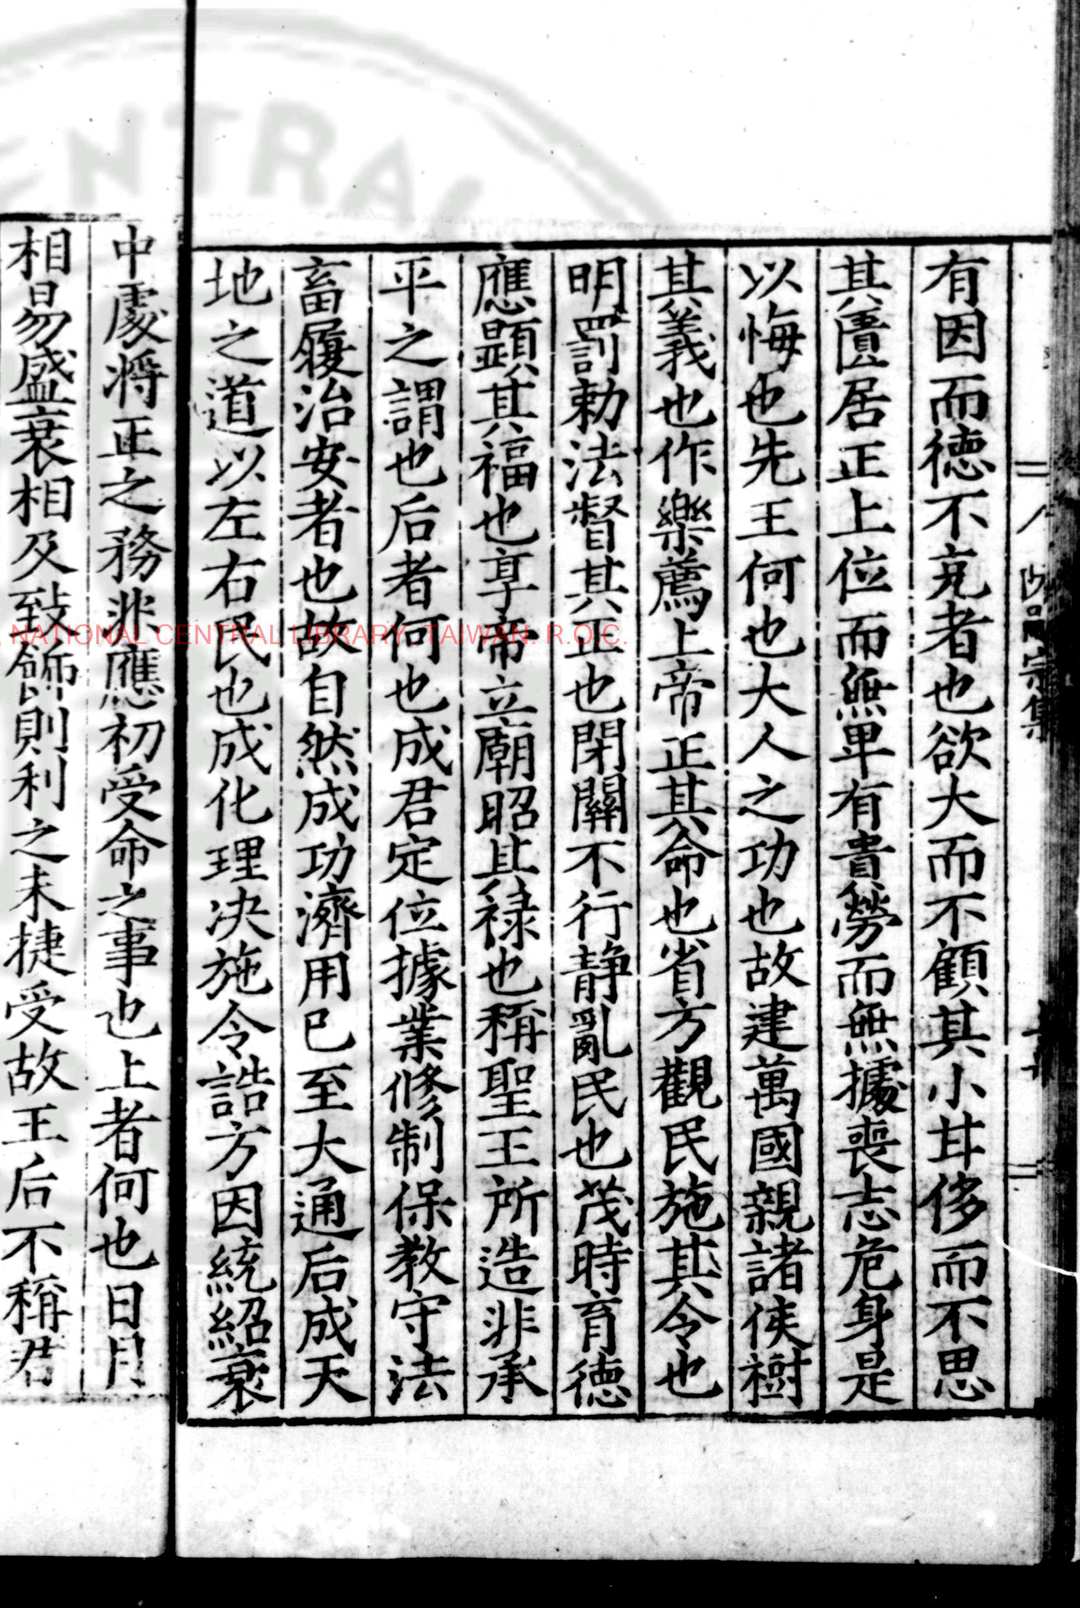 有因而德不充者也欲大而不顧其小甘侈而不思
其匱居正上位而無卑有貴勞而無據喪志危身是
以悔也先王何也大人之功也故建萬國親諸侯樹
其義也作樂薦上帝正其命也省方觀民施其令也
明罰勅法督其正也閉關不行静亂民也茂時育德
應顯其福也享帝立廟昭其祿也稱聖王所造非承
平之謂也后者何也成君定位據業修制保教守法
畜履治安者也故自然成功濟用已至大通后成天
地之道以左右民也成化理决施令誥方因統紹衰
中處將正之務非應初受命之事也上者何也日月
相易盛衰相及致飾則利之未捷受故王后不稱君
宗集
NATIONAL CENTRAL LIBRARY, TAIWAN, R.O.C.